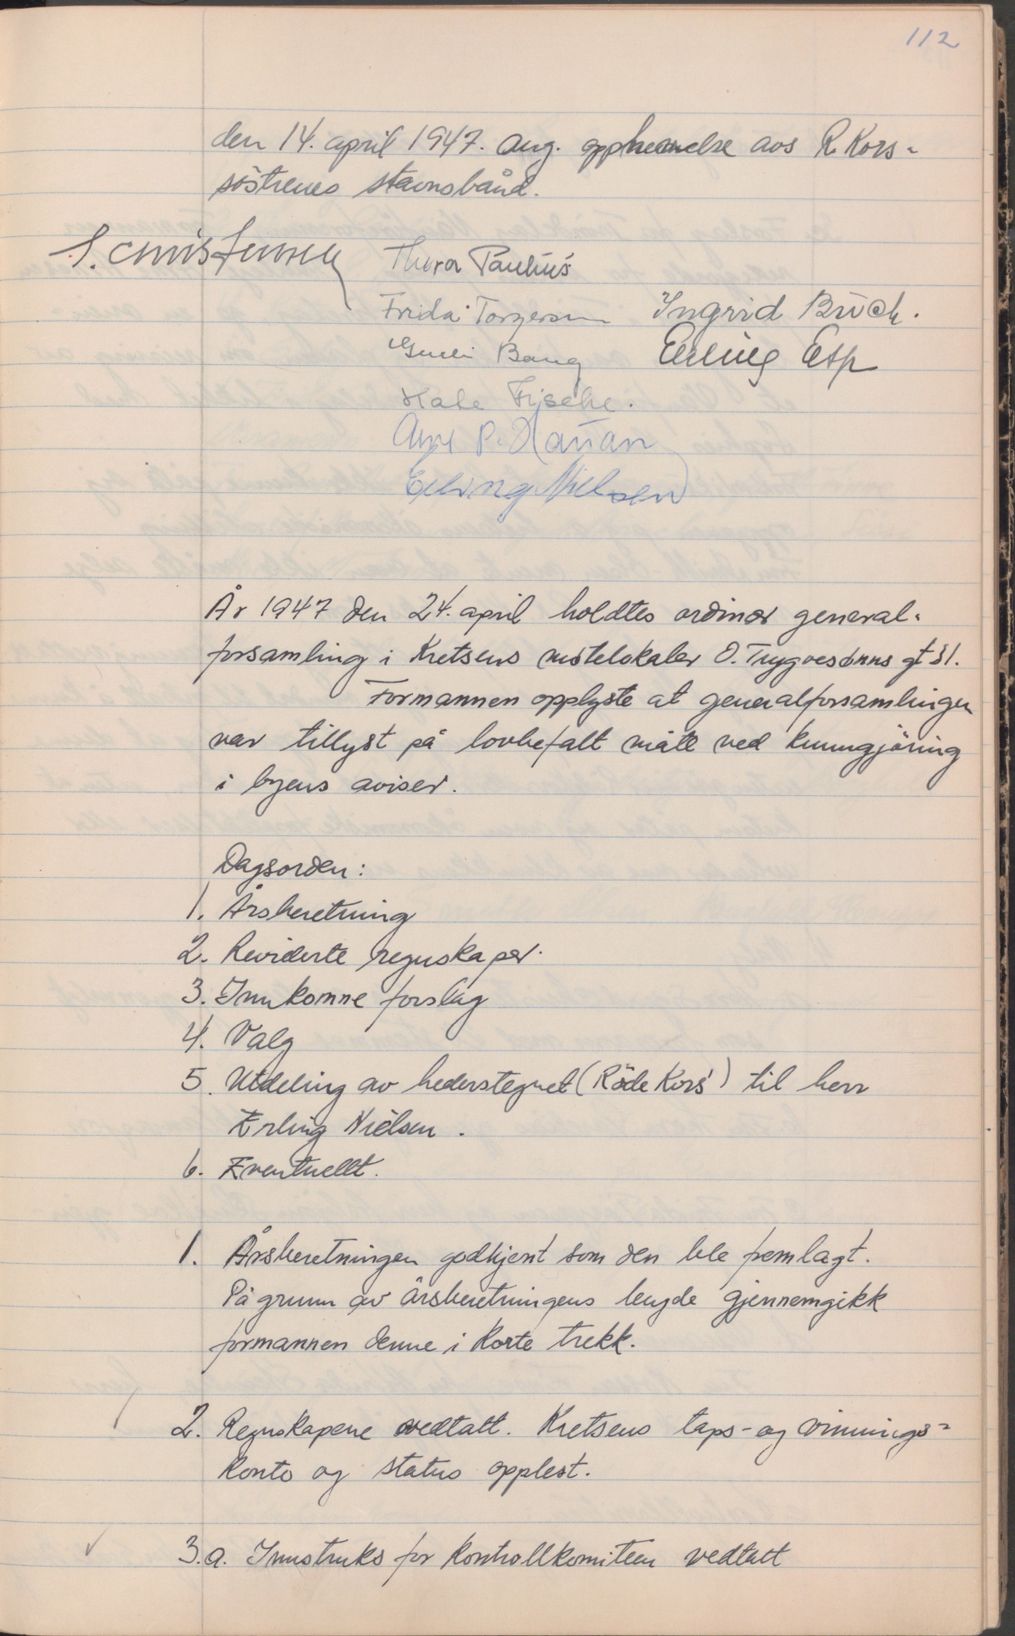 112
den 14. april 1947. ang. opphevelse av R. Kors-
söstrenes stavnsbånd.
S. Christensen Thora Paulius
Frida Torgersen Ingrid Bück.
Gulli Bang Erling Esp
Hale Fische.
P. Hanan
Erling Nielsen
År 1947 den 24. april holdtes ordinær general-
forsamling i Kretsens møtelokaler O. Trygvesönns gt 31.
Formannen opplyste at generalforsamlingen
var tillyst på lovbefalt måte ved kunngjöring
i byens aviser.
Dagsorden:
1. Årsberetning
2. Reviderte regnskaper.
3. Innkomne forslag
4. Valg
5. Utdeling av hederstegnet (Röde Kors) til herr
Erling Nielsen.
6. Eventuellt.
1. Årsberetningen godkjent som den ble fremlagt.
På grunn av årsberetningens lengde gjennemgikk
formannen denne i korte trekk.
2. Regnskapene vedtatt. Kretsens taps- og vinnings-
konto og status opplest.
3.a. Innstruks for kontrollkomiteen vedtatt